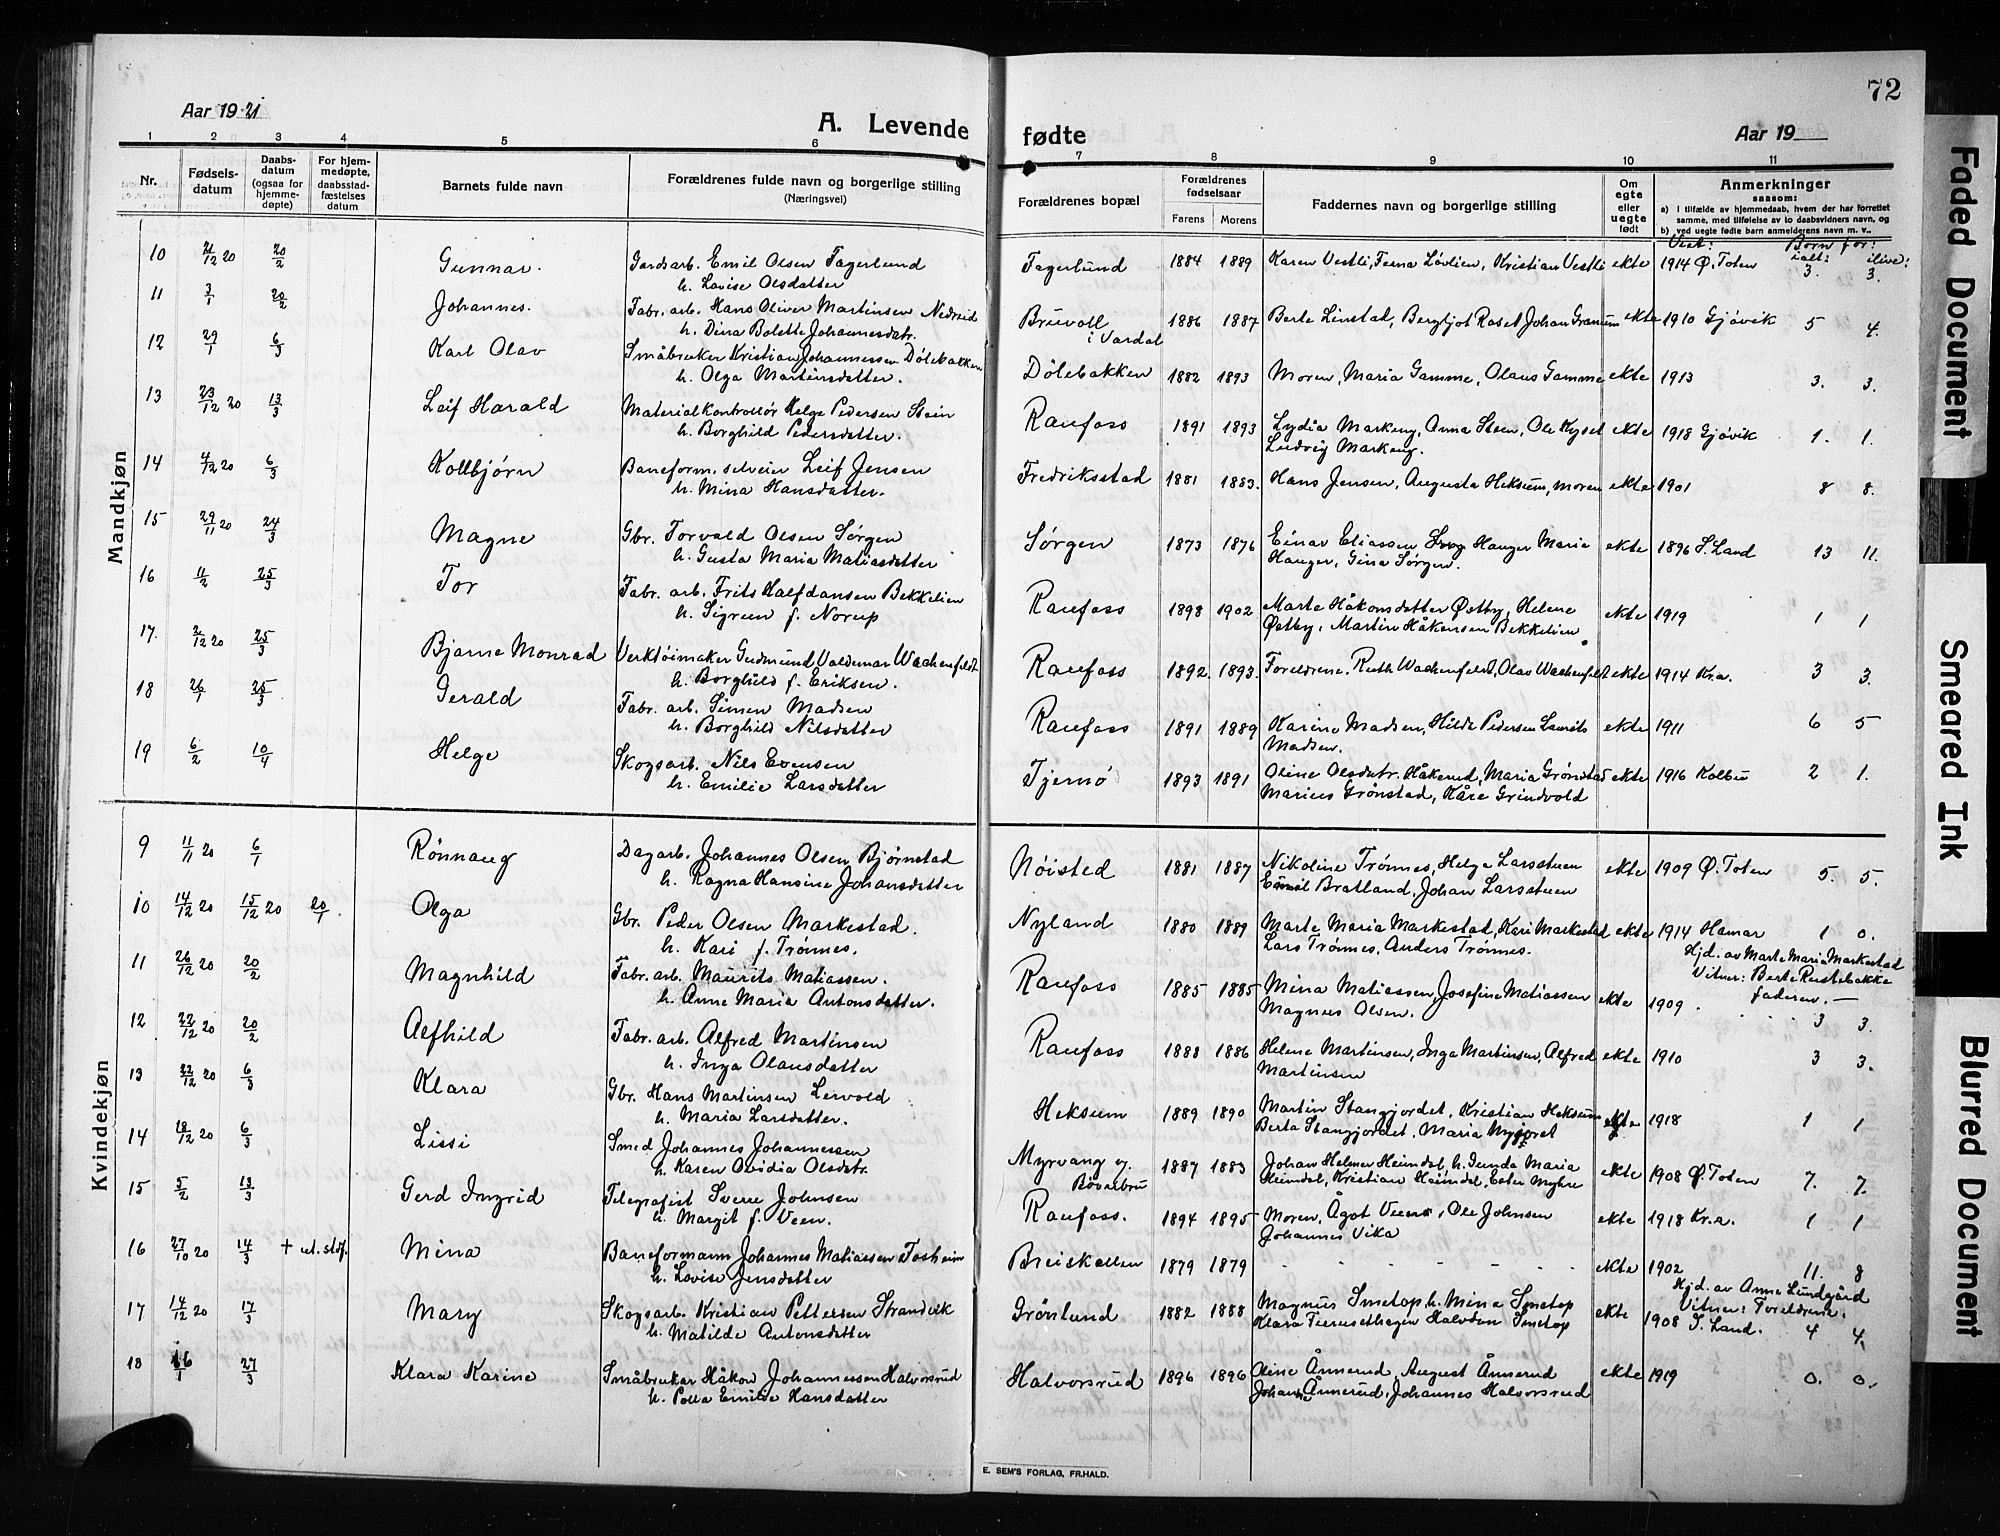 72
Aar 1921
A. Levende fødte
Aar 19
1 2 3 4 5 6 7 8 9 10 11
Nr. Fødselsdatum Daabsdatum (ogsaa for hjemmedøpte) For hjemmedøpte, daabsstadfæstelses datum Barnets fulde navn Forældrenes fulde navn og borgerlige stilling (Næringsvei) Forældrenes bopæl Forældrenes fødselsaar Farens Morens Faddernes navn og borgerlige stilling Om egte eller uegte født Anmerkninger saasom:
a) i tilfælde av hjemmedaab, hvem der har forrettet samme, med tilføielse av to daabsvidners navn, og
b) ved uegte fødte barn anmelderens navn m. v.
Vest: Born for: ialt: ilive:
Mandkjøn
10 21/12 20 20/2 Gunnar. Gardsarb. Emil Olsen Fagerlund Fagerlund 1884 1889 Karen Vestli, Kristian Vestli ekte 1914 Ø. Toten 3. 3.
h. Lovise Olsdatter
11 3/1 20/2 Johannes. Fabr. arb. Hans Oliver Martinsen Nedreid Bruvoll i Vardal 1886 1887 Berte Linstad, Bergljot Roset Johan Granum ekte 1910 Gjøvik 5 4.
h. Dina Bolette Johannesdatr.
12 29/1 6/3 Karl Olav Småbruker Kristian Johannessen Dølebakken Dölebakken 1882 1893 Moren, Maria Gamme, Olaus Gamme ekte 1913 3. 3.
h. Olga Martinsdatter.
13 23/12 20 13/3 Leif Harald Materialkontrollør Helge Pedersen Stein Raufoss 1891 1893 Lydia Markeng, Anna Steen, Ole Kyset ekte 1918 Gjøvik 1. 1.
h. Borghild Pedersdatter. Ludvig Markeng.
14 4/12 20 6/3 Kollbjørn Baneform. selveier Leif Jensen Fredriksstad 1881 1883. Hans Jensen, Augusta Heksum, moren ekte 1901 8 8.
h. Mina Hansdatter.
15 29/11 20 24/3 Magne Gbr. Torvald Olsen Sørgen Sørgen 1873 1876 Einar Eliassen Hanger Maria ekte 1896 S. Land 13 11.
h. Gusta Maria Matiasdatter Hanger, Gina Sørgen.
16 11/2 25/3 Tor Fabr. arb. Frits Halfdansen Bekkelien Raufoss 1898 1902 Marte Håkonsdatter Østby, Helene ekte 1919 1 1
h. Sigrun f. Norup Østby, Martin Håkensen Bekkelien
17. 2/12 20 25/3 Bjarne Monrad Verktøimaker Gudmund Valdemar Wachenfeldt Raufoss 1892. 1893. Foreldrene. Ruth Wachenfeldt, Olav Wachenfeldt ekte 1914 Kr.a. 3 3.
h. Borghild f. Eriksen.
18 26/1 25/3 Gerald Fabr. arb. Simen Madsen Raufoss 1891 1889 Karine Madsen, Hilda Pedersen Laurits ekte 1911 6 5
h. Borghild Nilsdatter Madsen.
19 6/2 10/4 Helge Skogsarb. Nils Evensen Tjernø 1893 1891 Oline Olsdatr. Håkerud, Maria Grønstad ekte 1916 Kolbu 2 1.
h. Emilie Larsdatter Marius Grønstad, Kåre Grindvold
Kvindekjøn
9 11/11 20 6/1 Rönnaug Dagarb. Johannes Olsen Bjørnstad Nøisted 1881 1887 Nikoline Trønnes, Helga Larsstuen ekte 1909 Ø. Toten 5. 5.
h. Ragna Hansine Johansdatter Emil Bratland, Johan Larsstuen
10 14/12 20 15/12 20 20/1. Olga Gbr. Peder Olsen Markestad. Nyland 1880 1889 Marte Maria Markestad, Kari Markestad ekte 1914 Hamar 1 0.
h. Kari f. Trønnes. Lars Trønnes, Anders Trønnes. Hjd. av Marte Maria Markestad
Vitner: Berte Rustebakke
faderen. —
11 26/12 20 20/2 Magnhild Fabr. arb. Maurits Matiassen. Raufoss 1885 1885 Mina Matiassen, Josefine Matiassen ekte 1909 3 3.
h. Anne Maria Antonsdatter. Magnus Olsen.
12 22/12 20 20/2 Alfhild Fabr. arb. Alfred Martinsen Raufoss 1888 1886 Helene Martinsen, Inga Martinsen, Alfred ekte 1910 3 3.
h. Inga Olausdatter Martinsen
13 22/12 20 6/3 Klara Gbr. Hans Martinsen Lervold Heksum 1889 1890 Martin Stangjordet, Kristian Heksum ekte 1918 1 1
h. Maria Larsdatter. Berta Stangjordet, Maria Nyjoret
14 18/12 20 6/3 Lissi Smed Johannes Johannessen Myrvang ej. Bøverbru 1887 1883 Johan Helmer Heimdal, h. Gunda Maria ekte 1908 Ø. Toten 7. 7.
h. Karen Ovidia Olsdtr. Heimdal, Kristian Heimdal, Ester Myhre
15 5/2 13/3 Gerd Ingrid Telegrafist Sverre Johnsen Raufoss. 1894 1895 Moren, Ågot Veen, Ole Johnsen ekte 1918 Kr.a. 1 1
h. Margit f. Veen. Johannes Vika
16 27/10 20 14/3 + ut. stof. Mina Baneformann Johannes Matiassen Tosheim Breiskallen 1879 1879 - - - - - - ekte 1902 11. 8
h. Lovise Jensdatter
17 14/12 20 17/3 Mary Skogsarb. Kristian Pettersen Strandvik Grönlund 1882 1888 Magnus Smetop, h. Mina Smetop ekte 1908 S. Land. 4 4.
h. Matilde Antonsdatter Klara Halvdan Smetop Hjd. av Anne Lundgård
Vitner: Foreldrene.
18 16/1 27/3 Klara Karine Småbruker Håkon Johannessen Halvorsrud Halvorsrud 1896 1896 Oline Ånnerud, August Ånnerud ekte 1919 0. 0.
h. Emilie Hansdatter Johan Ånnerud, Johannes Halvorsrud
E. SEM'S FORLAG, FR.HALD.
Faded Document
Smeared Ink
Blurred Document